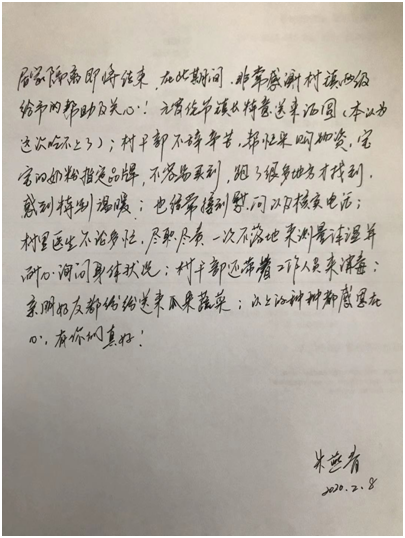 居家隔离即将结束，在此期间，非常感谢村镇两级
给予的帮助及关心！元宵佳节镇上特意送来汤圆（本以为
这次吃不上了）；村干部不辞辛苦，帮忙采购物资，宝
宝的奶粉指定品牌，不容易买到，跑了很多地方才找到，
感到特别温暖；也经常得到慰问以及核实电话；
村里医生不论多忙，尽职尽责，一次不落地来测量体温并
耐心询问身体状况；村干部还带着工作人员来消毒；
亲朋好友都纷纷送来瓜果蔬菜；以上种种都感恩在
心，有你们真好！
朱燕青
2020.2.8